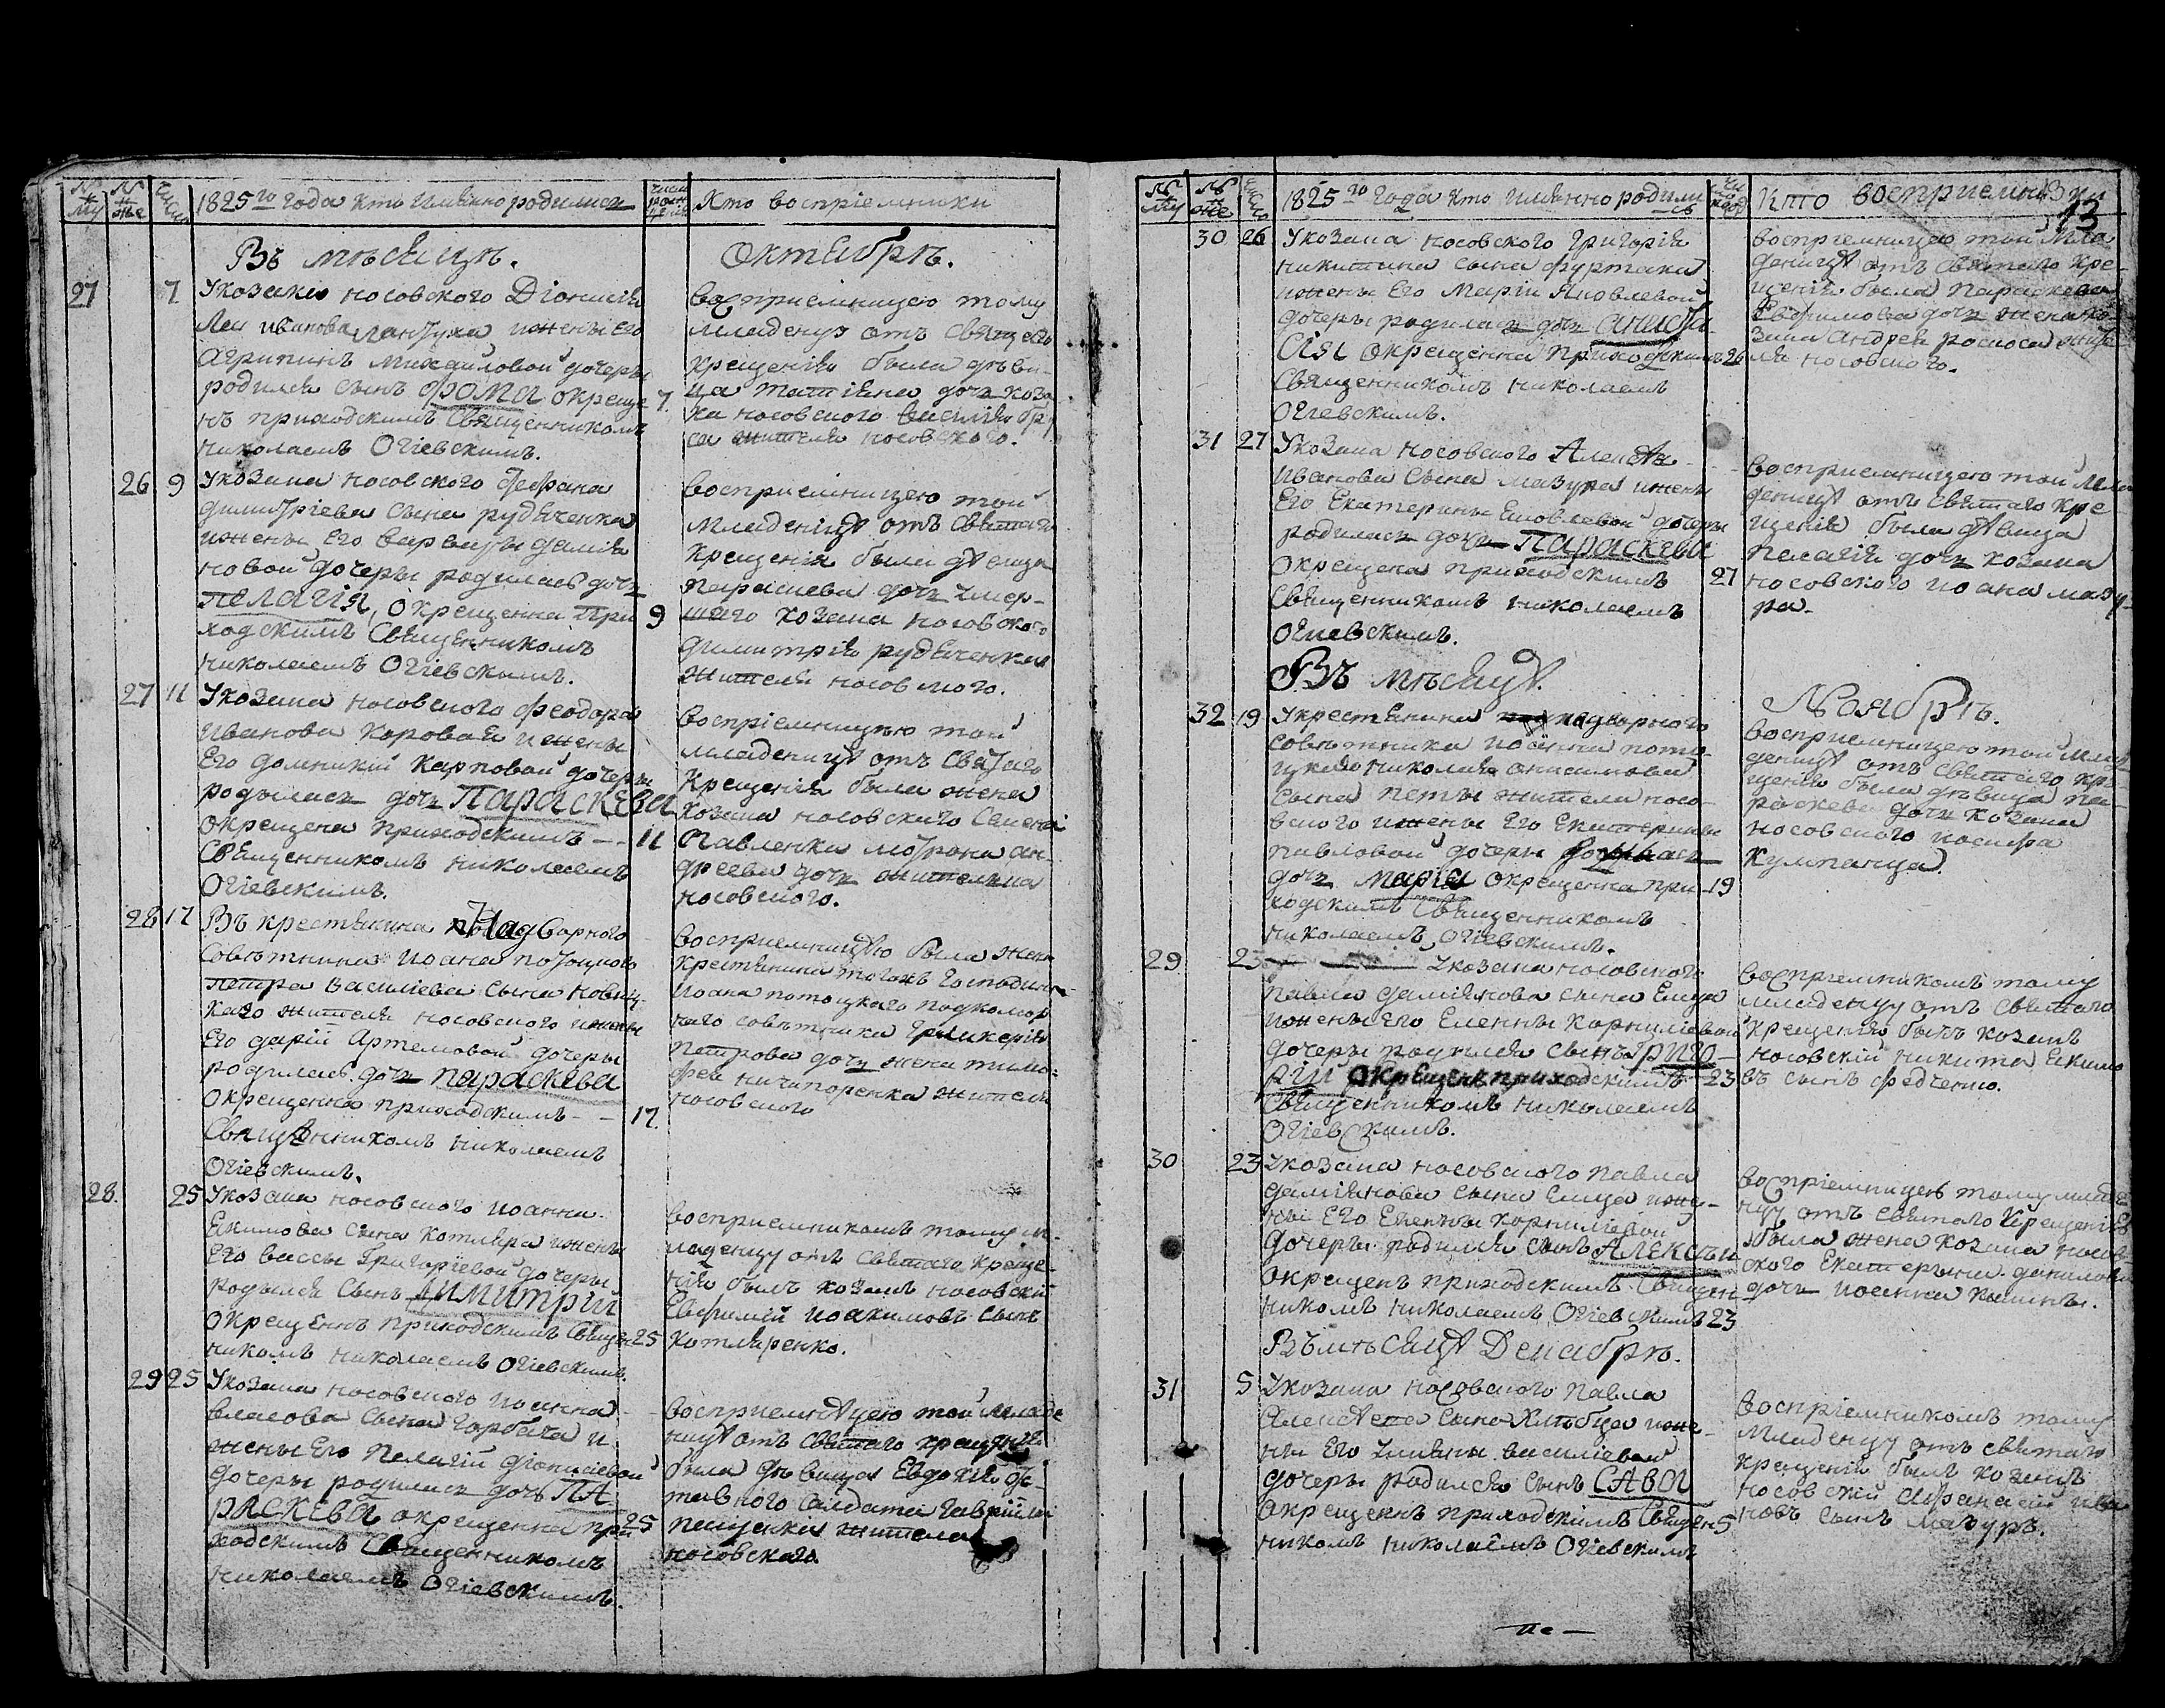 1825го года кто имянно родился
Кто воспріемники
Въ месяце.
Октябре.
27 7 Укозака носовского Діонисія
иванова ижены Его
агрипины михайловой дочеры
родился сынъ ФОМА окреще 7.
нъ приходскимъ Священникомъ
николаемъ Огіевскимъ.
восприемницею тому
младенцу отъ Святаго
крещенія была деви-
ца татіяна дочь коза
ка носовского василія
жителя носовского.
26 9 Укозака носовского стефана
димитріева сына рудѣченка
ижены Его варвары даміа
новой дочеры родилась дочь
ПЕЛАГІЯ, окрещенна При 9
ходскимъ Священникомъ
николаемъ Огіевскимъ.
восприемницею той
младеницѣ отъ Святаго
крещенія была дѣвица
параскева дочь умер-
шаго козака носовского
димитрія рудѣченка
жителя носовского.
27 11 Укозака носовского феодора
иванова Коровая ижены
Его домникіи карповой дочеры
родылась дочь ПАРАСКЕВА
окрещена приходскимъ - - 11
Священникомъ николаемъ
Огіевскимъ.
воспріемницею той
младеницѣ отъ Святаго
крещенія была жена
козака носовского Семена
Павленка мотрона ан-
дреева дочь жителька
носовского.
28 17 Въ крестянина надворного
совѣтника иоана потоцкого
петра василіева сына новиц-
кого жителя носовского ижены
Его даріи Артемовой дочеры
родилась дочь параскева
окрещенна приходскимъ - - 17.
Священникомъ николаемъ
Огіевскимъ.
восприемницею была жена
крестянина тогожъ Господина
иоана потоцкаго
совѣтника Гликерія
петрова дочь жена тимо-
фея ничипоренка жителя
носовского
28. 25 Укозака носовского иоанна
Екимова сына котляра ижены
Его вассы Григоріевой дочеры
родился сынъ ДИМИТРІЙ
окрещеннъ приходскимъ Священ 25
никомъ николаемъ Огіевскимъ.
восприемникомъ тому м-
ладенцу отъ Святаго креще-
нія былъ козакъ носовскій
Евфимій иоакимовъ сынъ
котляренко.
29 25 Укозака носовского иоанна
власова сына Горбача и
жены Его Пелагіи діонисіевой
дочеры родилась дочь ПА
РАСКЕВА окрещенна при 25
ходскимъ Священникомъ
николаемъ Огіевскимъ.
восприемницею той младе
ницѣ отъ святаго крещенія
была дѣвица Евдокія от
ставного салдата гавріила
пащенка жителя
носовского.
1825го Года кто имянно родился
Кто восприемники
13
30 26 Укозака носовского Григорія
никитина сына фуртака
ижены Его Маріи Яковлевой
дочеры родилась дочь АНАСТА
СІЯ окрещенна приходскимъ 26
Священникомъ николаемъ
Огіевскимъ.
воспріемницею той мла
деницѣ отъ Святаго кре-
щенія была Параскева
Евфимова дочь жена ко-
зака Андрея жите
ля носовского.
31 27 Укозака носовского Алексѣя
иванова сына мазура ижены
Его Екатерины Яковлевой дочеры
родилась дочь ПАРАСКЕВА
окрещена приходскимъ 27
Священникомъ николаемъ
Огиевскимъ.
восприемницею той мла
деницѣ отъ Святаго кре
щенія была дѣвица
пелагія дочь козака
носовского иоана мазу-
ра.
Въ месяцѣ.
Ноябре.
32 19 Укрестянина надворного
совѣтника иоанна пото
цкого николая анисимова
сына петы жителя носо-
вского ижены Его Екатерины
павловой дочеры родилась
дочь МАРІЯ окрещенна при-19
ходскимъ Священникомъ
николаемъ Огіевскимъ.
восприемницею той мла
деницѣ отъ Святаго кре
щенія была девица па-
раскева дочь козака
носовского иосифа
кумпанца.
29 23 Укозака носовского
Павла даміянова сына Емца
ижены Его Еленны Корниліевой
дочеры родился сынъ ГРИГО-
РІЙ окрещенъ приходскимъ-23
Священникомъ николаемъ
Огіевскимъ.
воспріемникомъ тому
младенцу отъ Святаго
крещенія былъ козакъ
носовскій никита Екимо
въ сынъ федченко.
30 23 Укозака носовского Павла
даміянова сына Емца иже-
ны Его Еленны корниліевой
дочеры родился сынъ АЛЕКСѢЙ
окрещенъ приходскимъ Священ
никомъ николаемъ Огіевскимъ 23
воспріемницею тому младе
нцу отъ святаго крещенія
была жена козака носов
ского Екатерына данилова
дочь иоанна
Въмѣсяцѣ Декабре.
31 5 Укозака носовского Павла
Алексѣева сына Хитьбца иже-
ны Его Уліяны василіевой
дочеры родился сынъ САВА
окрещеннъ приходскимъ Священ 5
никомъ николаемъ Огіевскимъ
воспріемникомъ тому
младенцу отъ святаго
крещенія былъ козакъ
носовскій афанасій ива
новъ сынъ мазуръ.